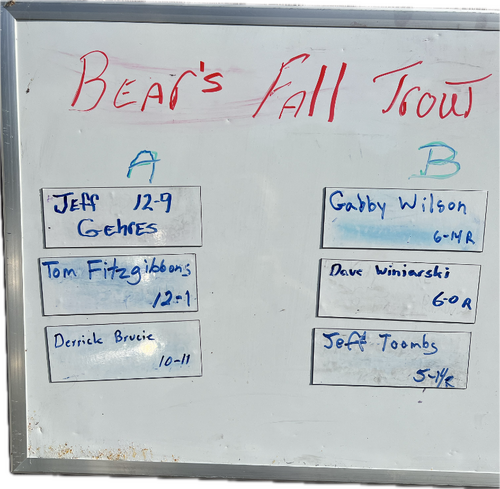 Bear's Fall Trout
A
Jeff 12-9
Gehres
Tom Fitzgibbons
12-1
Derrick Brucie
10-11
B
Gabby Wilson
6-14R
Dave Winiarski
6-0R
Jeff Toombs
5-14R